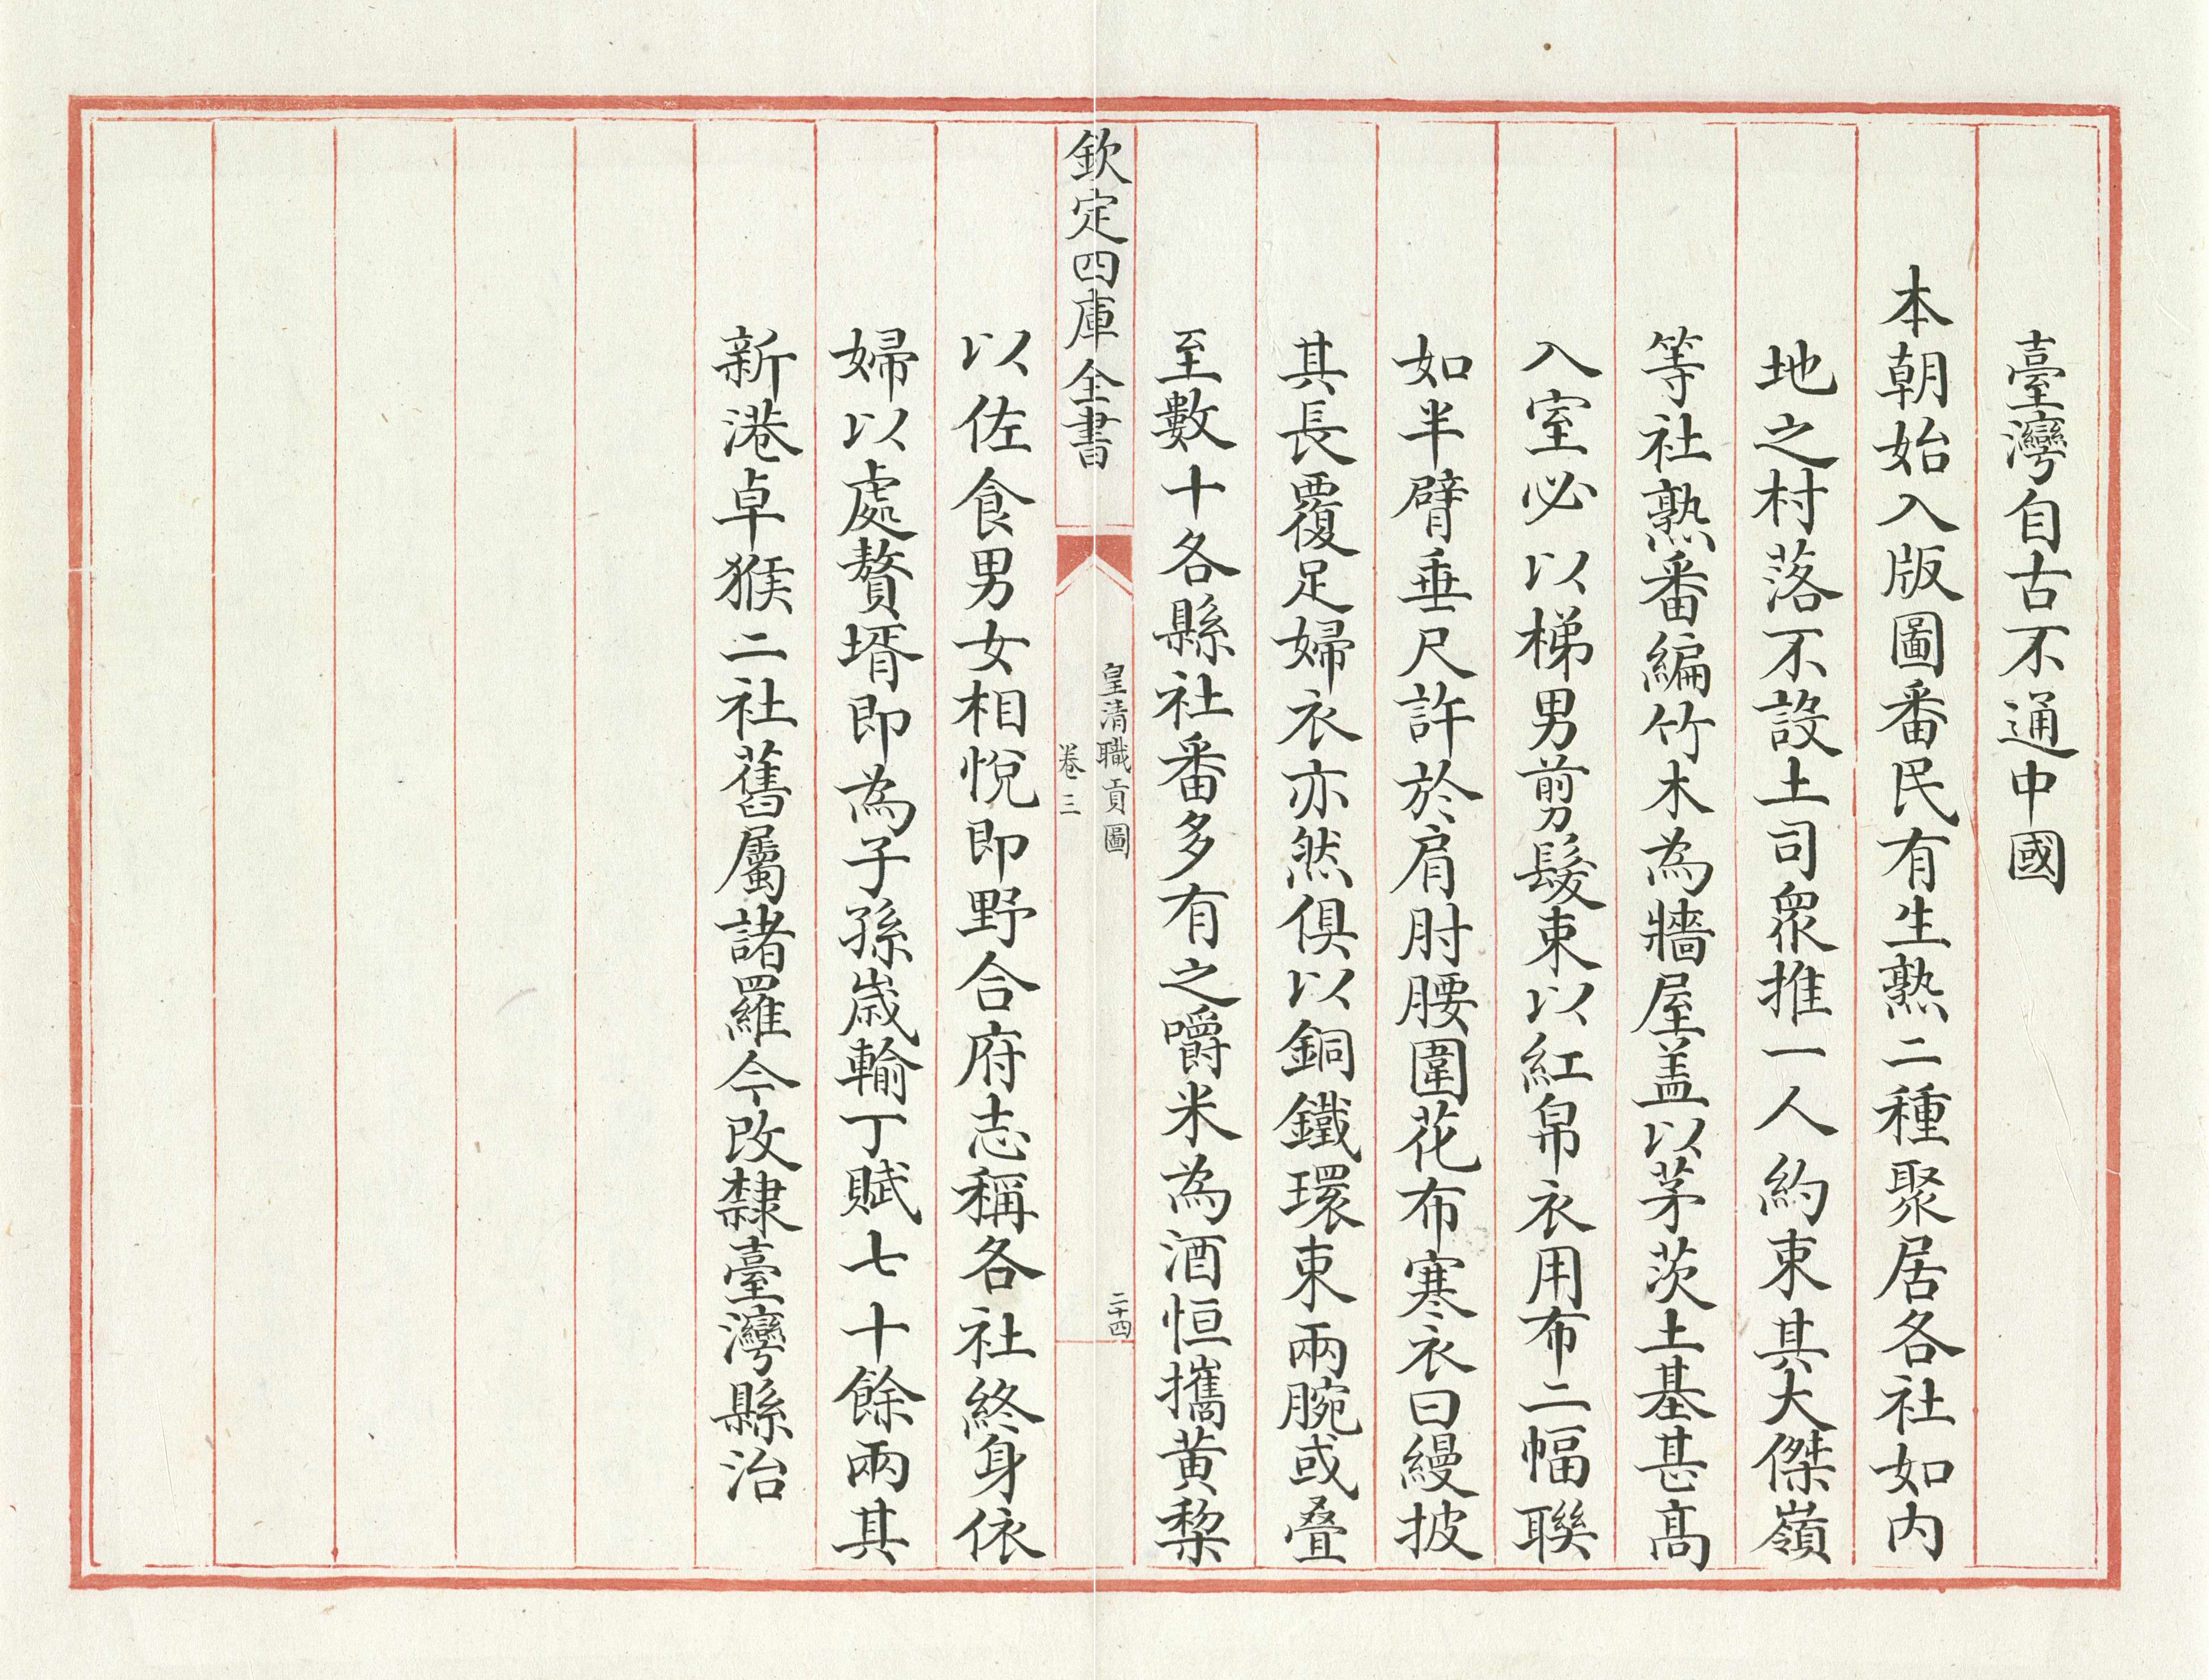 臺灣自古不通中國
本朝始入版圖番民有生熟二種聚居各社如内
地之村落不設土司衆推一人約束其大傑嶺
等社熟番編竹木為牆屋盖以茅茨土基甚髙
入室必以梯男剪髮束以紅帛衣用布二幅聨
如半臂垂尺許於肩肘腰圍花布寒衣曰縵披
其長覆足婦衣亦然俱以銅鐵環束兩腕或疊
至數十各縣社番多有之嚼米為酒恒攜黄棃
欽定四庫全書
皇清職貢圖
卷三
二十四
以佐食男女相悅即野合府志稱各社終身依
婦以處贅壻即為子孫歳輸丁賦七十餘兩其
新港卓猴二社舊屬諸羅今改隸臺灣縣治